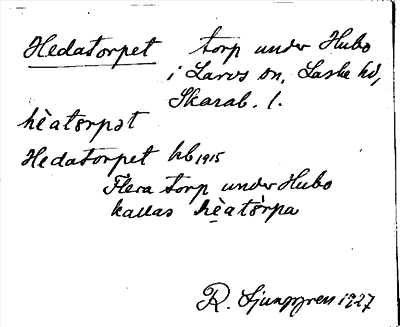 Hedatorpet torp under Hubo
i Larvs sn, Laske hd,
Skarab. l.
hèatårpət
Hedatorpet kb 1915
Flera torp under Hubo
kallas hèatårpa
R. Ljunggren 1927